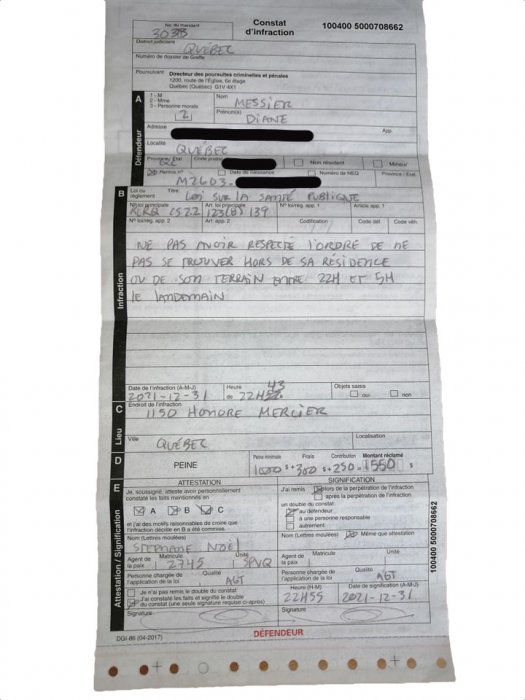 No IN standard
3033
Constat
d'infraction
100400 5000708662
District judiciaire
QUÉBEC
Numéro de dossier de Greffe
Poursuivant
Directeur des poursuites criminelles et pénales
1200, route de l'Église, 6e étage
Québec (Québec) G1V 4X1
A
Défendeur
1 - M
2 - Mme
3 - Personne morale
2
Nom
MESSIER
Prénom(s)
DIANE
Adresse
App.
Localité
QUÉBEC
Province / État
Code postal
Non résident
Mineur
Permis n°
Date de naissance
Numéro de NEQ
Province / État
M2603-
B
Infraction
Loi ou
règlement
Titre
LOI SUR LA SANTÉ PUBLIQUE
N° loi/règ. principale
Art. loi principale
N° loi/règ. app. 1
Article app. 1
RLRQ c S-2.2 123(8) 139
N° loi/règ. app. 2
Art. app. 2
Codification
Code déf.
Code véh.
NE PAS AVOIR RESPECTÉ L'ORDRE DE NE
PAS SE TROUVER HORS DE SA RÉSIDENCE
OU DE SON TERRAIN ENTRE 22H ET 5H
LE LENDEMAIN
Date de l'infraction (A-M-J)
Heure
Objets saisis
2021-12-31
de 22H
43
oui
non
C
Lieu
Endroit de l'infraction
1150 HONORE MERCIER
Ville
QUÉBEC
Localisation
D
PEINE
Peine minimale
Frais
Contribution
Montant réclamé
1000 $ + 300 $ + 250 = 1550 $
E
Attestation / Signification
ATTESTATION
Je, soussigné, atteste avoir personnellement
constaté les faits mentionnés en
A
B
C
et j'ai des motifs raisonnables de croire que
l'infraction décrite en B a été commise.
Nom (Lettres moulées)
STEPHANE NOËL
Agent de
la paix
Matricule
Unité
2745
SPVQ
Personne chargée de
l'application de la loi
Qualité
AGT
Je n'ai pas remis le double du constat
J'ai constaté les faits et signifié le double
du constat (une seule signature requise ci-après)
Signature
SIGNIFICATION
J'ai remis
lors de la perpétration de l'infraction
après la perpétration de l'infraction
un double du constat:
au défendeur
à une personne responsable
autrement
Nom (Lettres moulées)
Même que attestation
Agent de
la paix
Matricule
Unité
Personne chargée de
l'application de la loi
Qualité
AGT
Heure (H-M)
Date de signification (A-M-J)
22H55
2021-12-31
Signature
100400 5000708662
DGI-86 (04-2017)
DÉFENDEUR